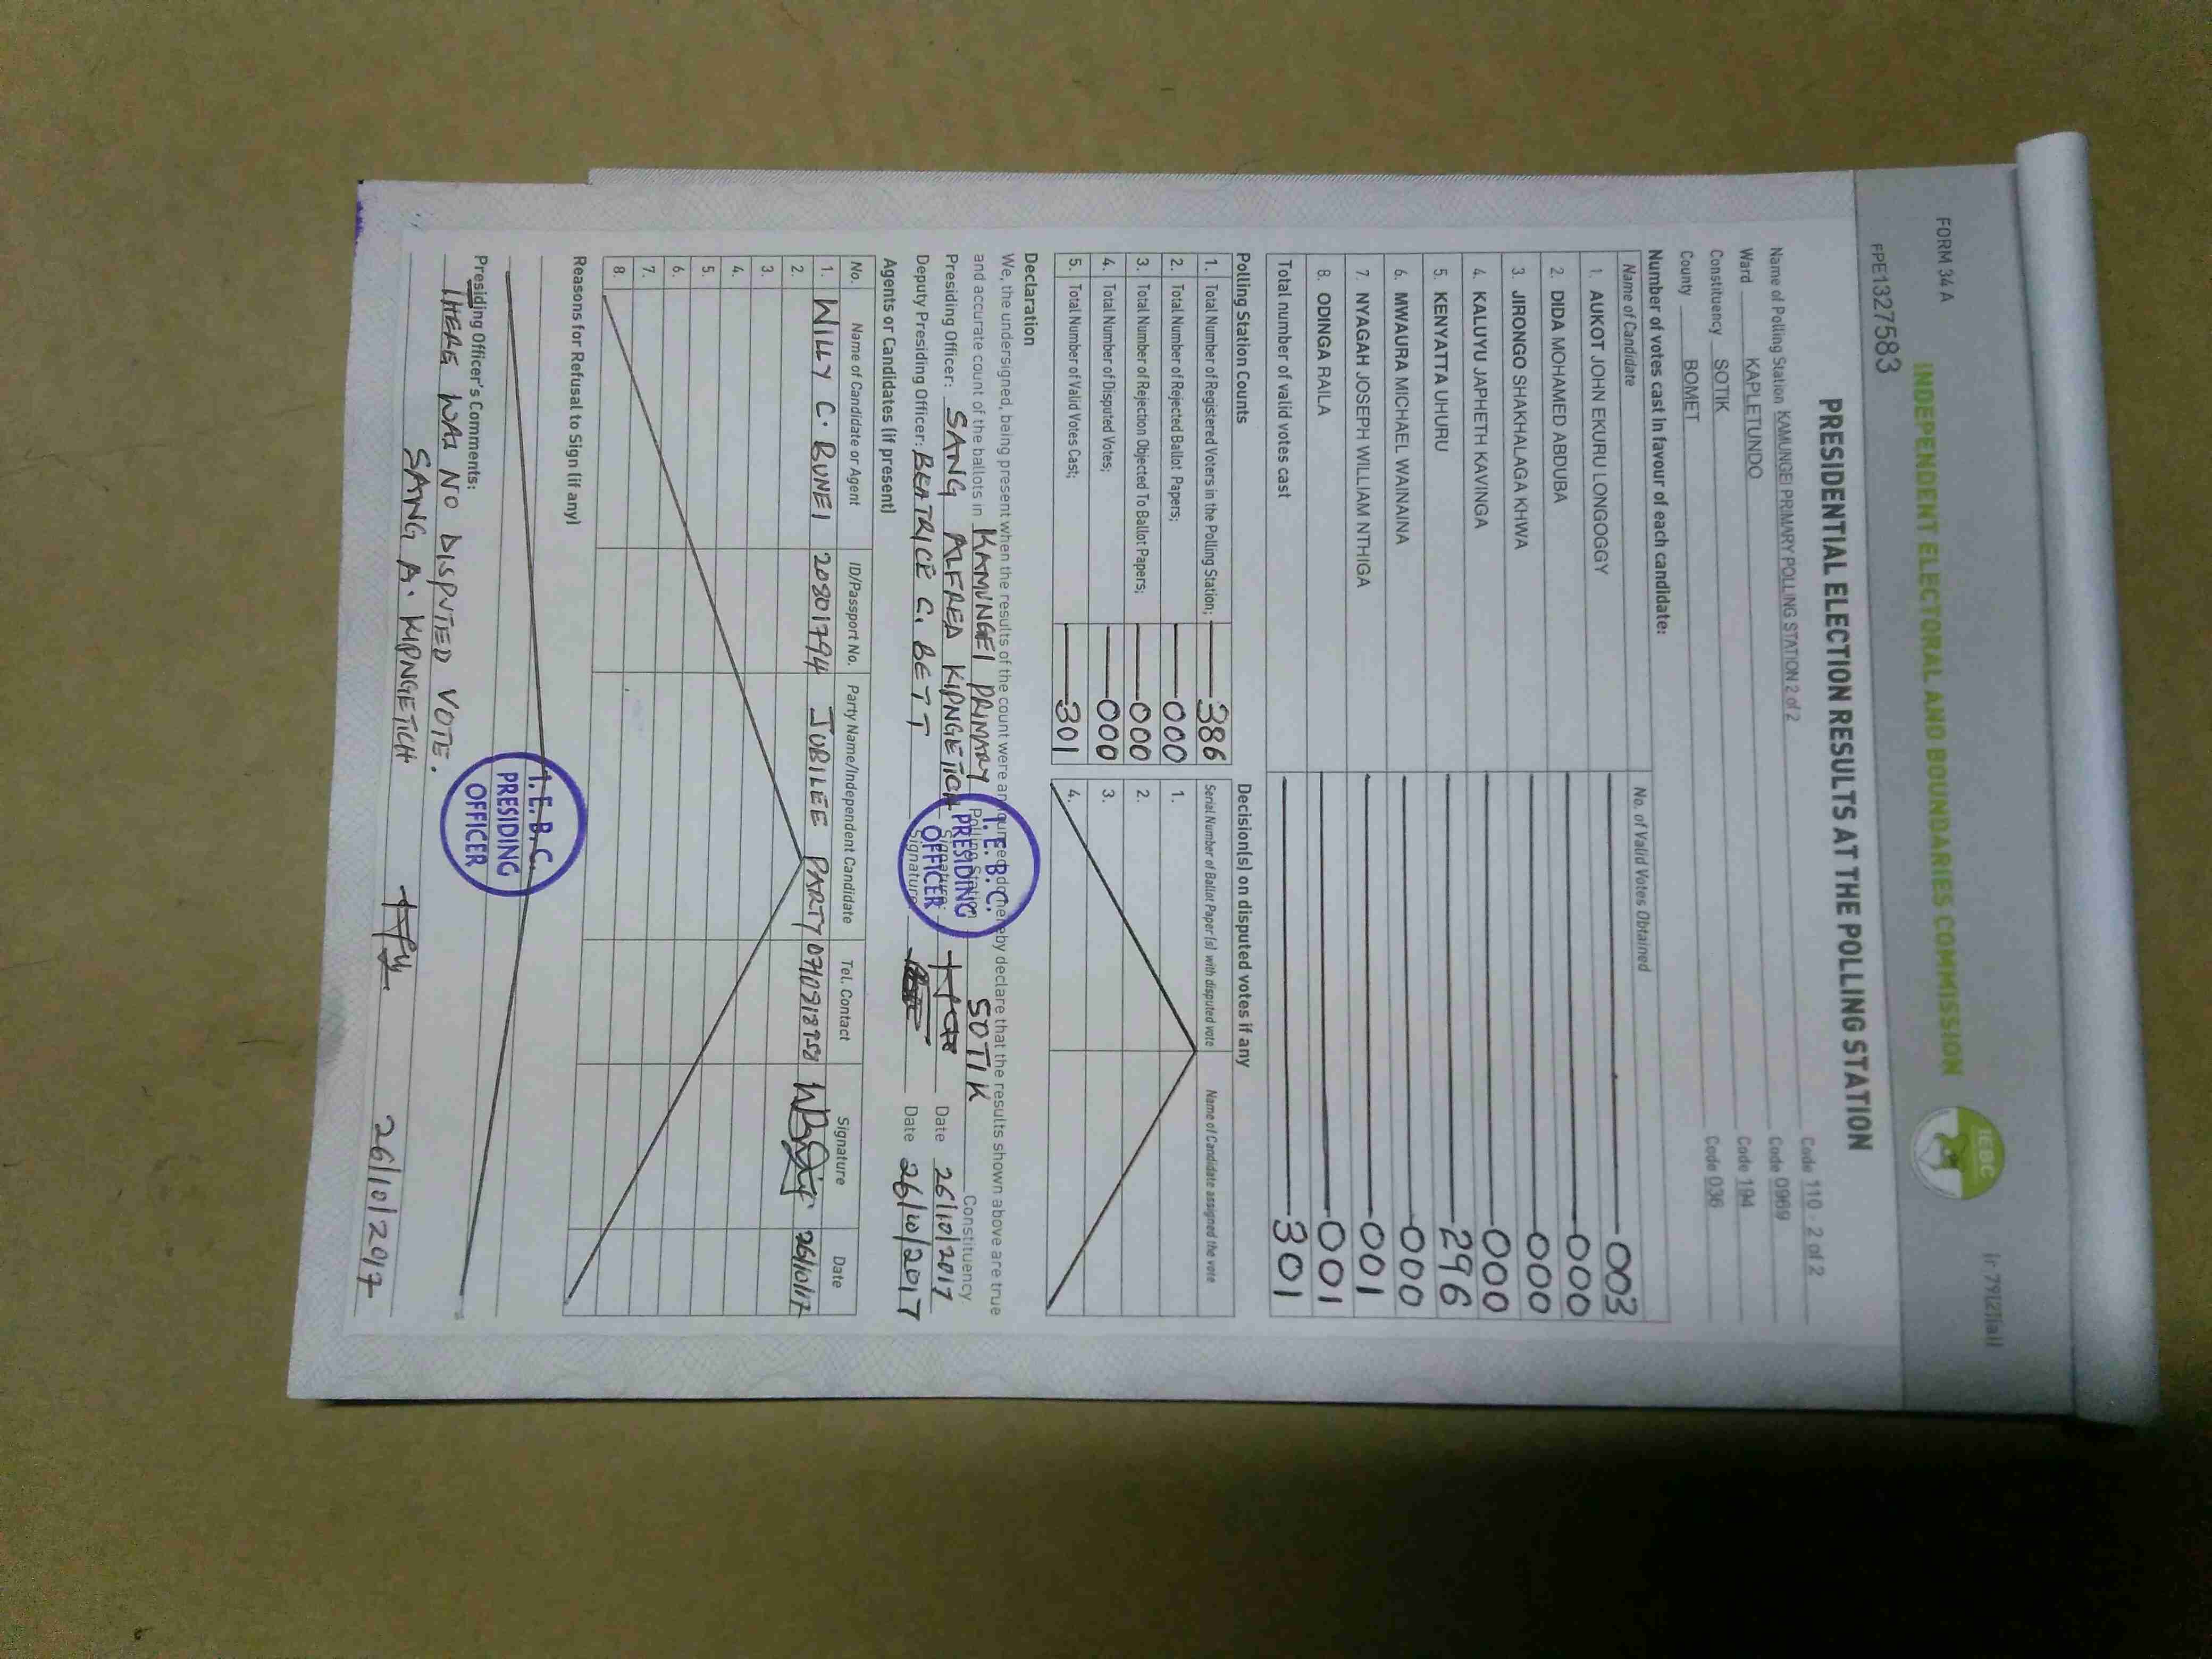 FORM 34 A
INDEPENDENT ELECTORAL AND BOUNDARIES COMMISSION
IEBC
FPE1327583
PRESIDENTIAL ELECTION RESULTS AT THE POLLING STATION
Name of Polling Station KAMUNGEI PRIMARY POLLING STATION 2 of 2 Code 110 - 2 of 2
Ward KAPLETUNDO Code 0969
Constituency SOTIK Code 194
County BOMET Code 036
Number of votes cast in favour of each candidate:
Name of Candidate No. of Valid Votes Obtained
1. AUKOT JOHN EKURU LONGOGGY 003
2. DIDA MOHAMED ABDUBA 000
3. JIRONGO SHAKHALAGA KHWA 000
4. KALUYU JAPHETH KAVINGA 000
5. KENYATTA UHURU 296
6. MWAURA MICHAEL WAINAINA 000
7. NYAGAH JOSEPH WILLIAM NTHIGA 001
8. ODINGA RAILA 001
Total number of valid votes cast 301
Polling Station Counts
1. Total Number of Registered Voters in the Polling Station; 386
2. Total Number of Rejected Ballot Papers; 000
3. Total Number of Rejection Objected To Ballot Papers; 000
4. Total Number of Disputed Votes; 000
5. Total Number of Valid Votes Cast; 301
Decision(s) on disputed votes if any
Serial Number of Ballot Paper (s) with disputed vote Name of Candidate assigned the vote
1.
2.
3.
4.
Declaration
We, the undersigned, being present when the results of the count were announced do hereby declare that the results shown above are true
and accurate count of the ballots in KAMUNGEI PRIMARY Polling Station SOTIK Constituency
Presiding Officer: SANG ALFRED KIPNGETICH Signature: Date 26/10/2017
Deputy Presiding Officer: BEATRICE C. BETT Signature Date 26/10/2017
I.E.B.C.
PRESIDING
OFFICER
Agents or Candidates (if present)
No. Name of Candidate or Agent ID/Passport No. Party Name/Independent Candidate Tel. Contact Signature Date
1. WILLY C. BUNEI 20801794 JUBILEE PARTY 26/10/17
2.
3.
4.
5.
6.
7.
8.
Reasons for Refusal to Sign (if any)
I.E.B.C.
PRESIDING
OFFICER
Presiding Officer's Comments:
THERE WAS NO DISPUTED VOTE.
SANG A. KIPNGETICH 26/10/2017